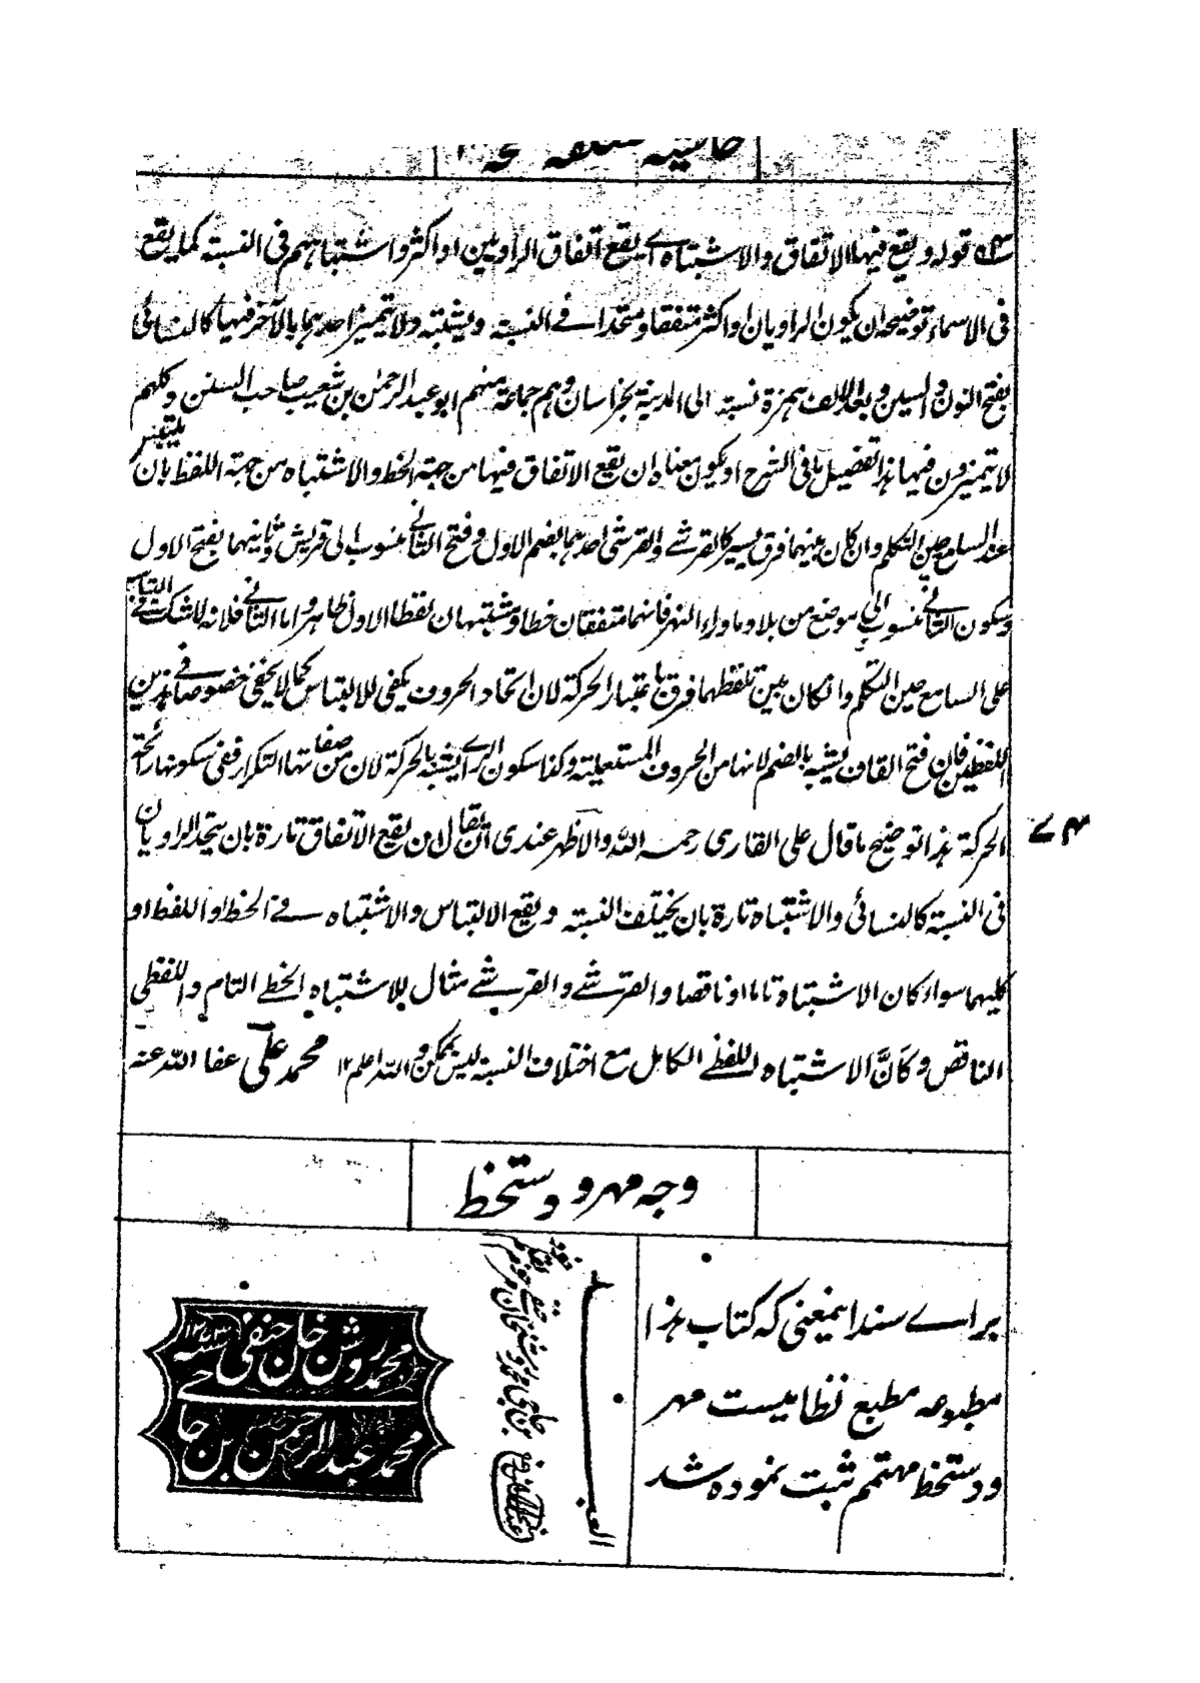 حاشیه متعلقه صفحه
قوله ويقع فيها الاتفاق والاشتباه اے يقع اتفاق الراويين او اكثر واشتباههم فى النسبة كما يقع
فى الاسماء توضيحه ان يكون الراويان او اكثر متفقا ومتحدا فے النسبة ويشتبه ولا يتميز احدهما بالآخر فيها كالنسائى
بفتح النون والسين وبعد الالف همزة نسبة الى المدينة بخراسان وهم جماعة منهم ابو عبد الرحمٰن بن شعيب صاحب السنن وكلهم
لا يتميزون فيها هذا تفصيل ما فى الشرح او يكون معناه ان يقع الاتفاق فيها من جهة الخط والاشتباه من جهة اللفظ بان يلتبس
عند السامع حين التكلم وان كان بينهما فرق يسير كالقرشے والقرشى احدهما بضم الاول وفتح الثانے منسوب الى قريش وثانيهما بفتح الاول
وسكون الثانے منسوب الى موضع من بلاد ماوراء النهر فانهما متفقان خطا ومشتبهان لفظا الاول ظاهر واما الثانے فلانه لا شك فے التباس
على السامع حين التكلم وان كان بين تلفظهما فرق باعتبار الحركة لان اتحاد الحروف يكفى للالتباس كما لا يخفى خصوصا فے هذين
اللفظين فان فتح القاف يشبه بالضم لانها من الحروف المستعلية وكذا سكون الراے يشبه بالحركة لان من صفاتها التكرار ففى سكونها رائحة
الحركة هذا توضيح ما قال على القارى رحمه الله والاظهر عندى ان يقال لان يقع الاتفاق تارة بان يتحد الراويان
فى النسبة كالنسائى والاشتباه تارة بان يختلف النسبة ويقع الالتباس والاشتباه فے الخط او اللفظ او
كليهما سواء كان الاشتباه تاما او ناقصا والقرشے والقرشے مثال للاشتباه الخطے التام واللفظى
الناقص وكأنَّ الاشتباه اللفظے الكامل مع اختلاف النسبة ليس بممكن والله اعلم ١٢ محمد على عفا الله عنه
وجه مهر و دستخط
براے سند اینمعنی که کتاب هذا
مطبوعه مطبع نظامیست مهر
ودستخط مهتمم ثبت نموده شد
العبد
محمد روشن خان حنفی
محمد عبد الرحمن بن حاجی